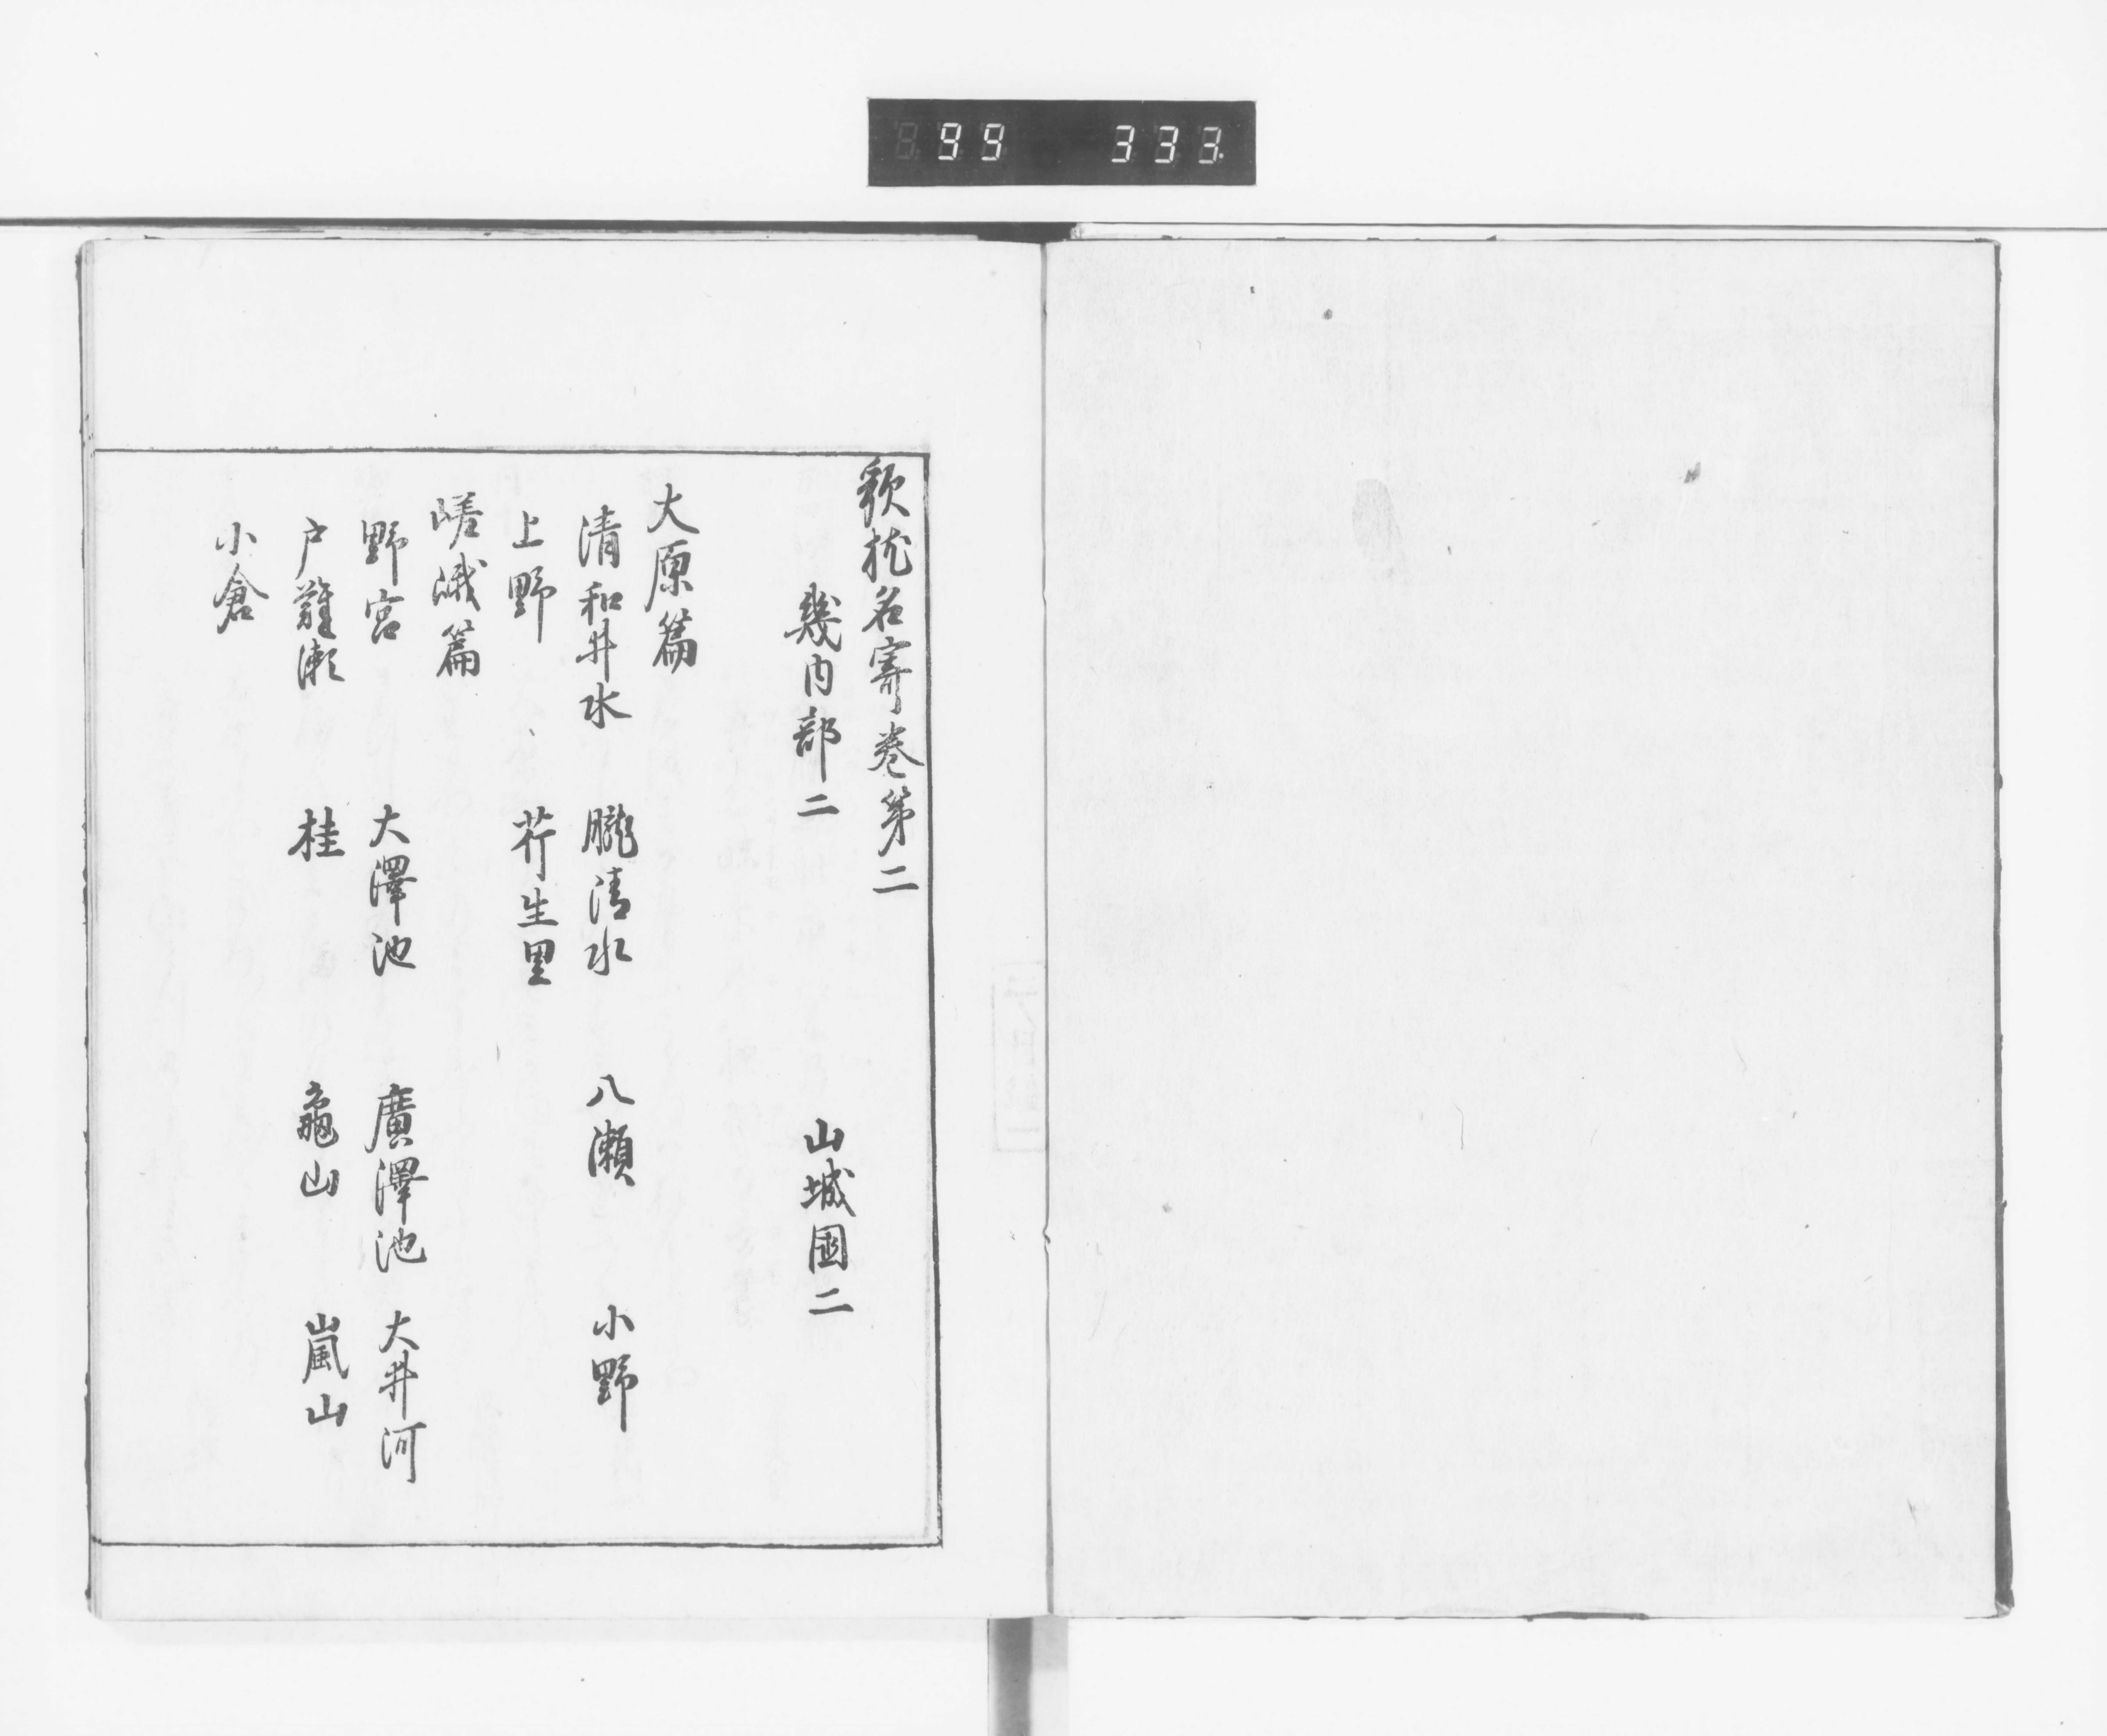 99 333
歌枕名寄巻第二
幾内部二 山城國二
大原篇
清和井水 朧清水 八瀬 小野
上野 芹生里
嵯峨篇
野宮 大澤池 廣澤池 大井河
戸難瀬 桂 龜山 嵐山
小倉